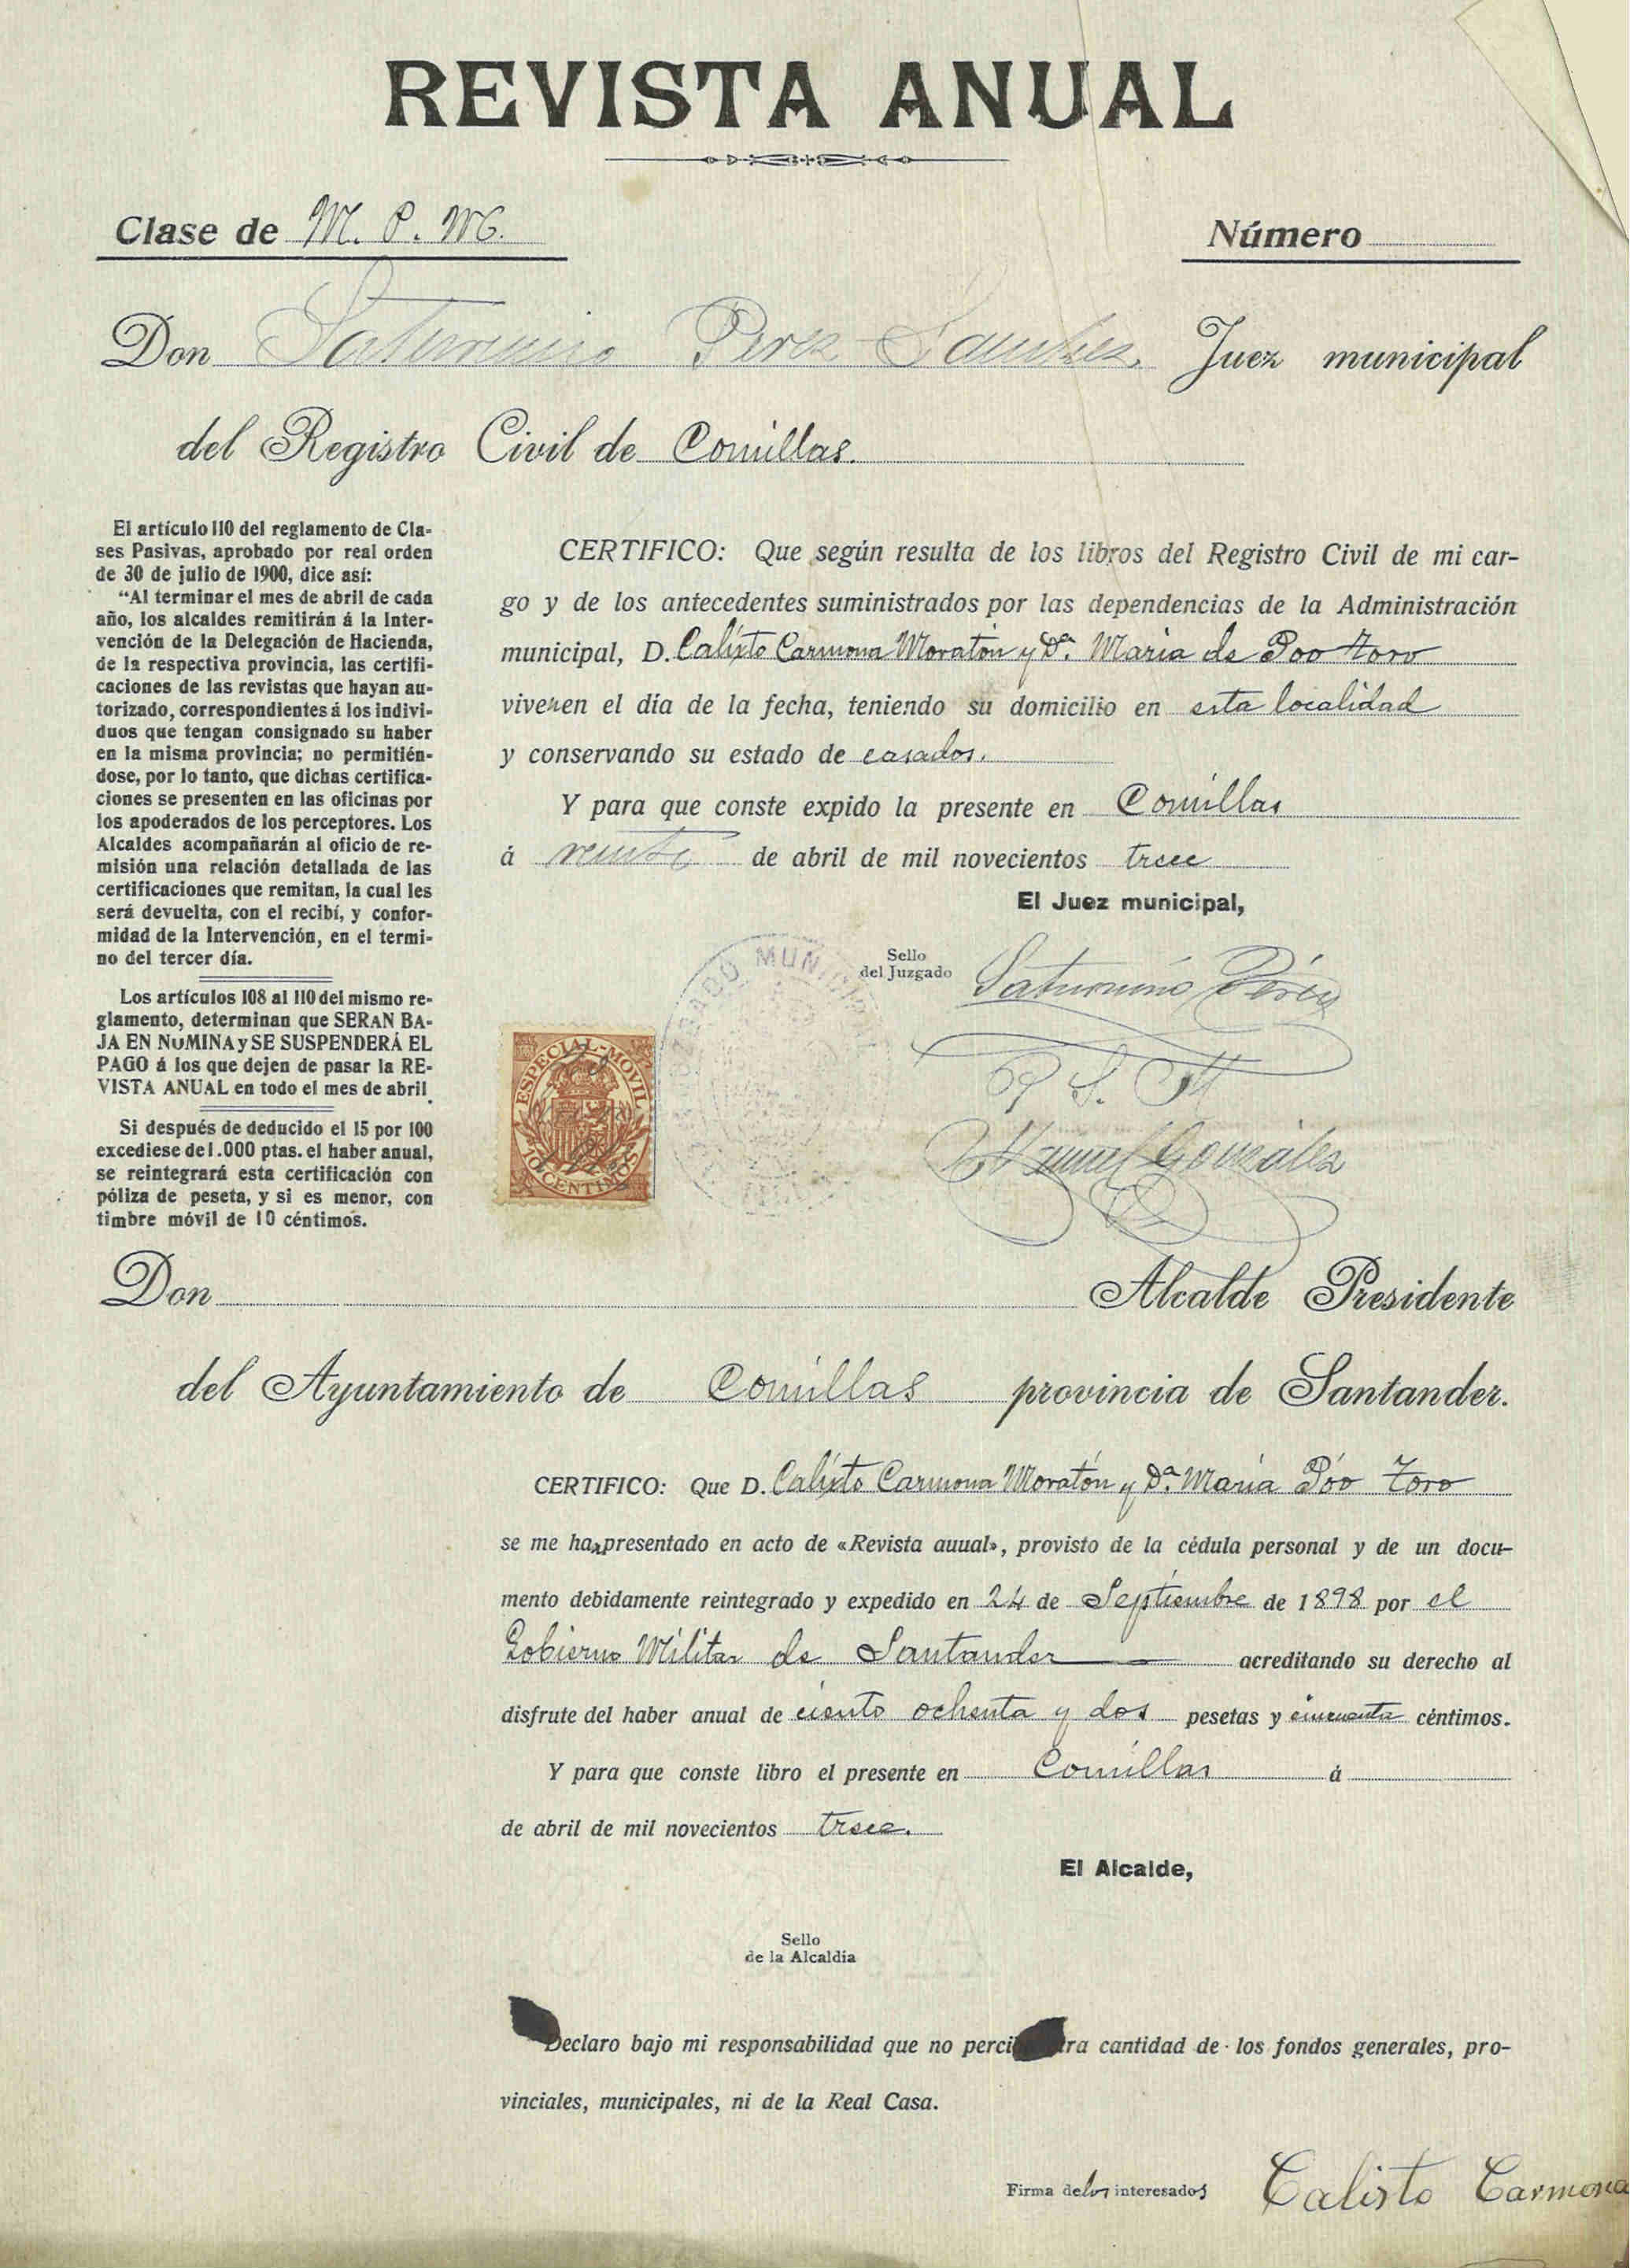 REVISTA ANUAL
Clase de M. P. M.
Número
Don Saturnino Perez Sanchez Juez municipal
del Registro Civil de Comillas.
El artículo 110 del reglamento de Cla-
ses Pasivas, aprobado por real orden
de 30 de julio de 1900, dice así:
“Al terminar el mes de abril de cada
año, los alcaldes remitirán á la Inter-
vención de la Delegación de Hacienda,
de la respectiva provincia, las certifi-
caciones de las revistas que hayan au-
torizado, correspondientes á los indivi-
duos que tengan consignado su haber
en la misma provincia; no permitién-
dose, por lo tanto, que dichas certifica-
ciones se presenten en las oficinas por
los apoderados de los perceptores. Los
Alcaldes acompañarán al oficio de re-
misión una relación detallada de las
certificaciones que remitan, la cual les
será devuelta, con el recibí, y confor-
midad de la Intervención, en el termi-
no del tercer día.
Los artículos 108 al 110 del mismo re-
glamento, determinan que SERAN BA-
JA EN NUMINA y SE SUSPENDERÁ EL
PAGO á los que dejen de pasar la RE-
VISTA ANUAL en todo el mes de abril.
Si después de deducido el 15 por 100
excediese de 1.000 ptas. el haber anual,
se reintegrará esta certificación con
póliza de peseta, y si es menor, con
timbre móvil de 10 céntimos.
CERTIFICO: Que según resulta de los libros del Registro Civil de mi car-
go y de los antecedentes suministrados por las dependencias de la Administración
municipal, D. Calixto Carmona Moratón y Dª. Maria de Poo Toro
viven en el día de la fecha, teniendo su domicilio en esta localidad
y conservando su estado de casados.
Y para que conste expido la presente en Comillas
á veinte de abril de mil novecientos trece
El Juez municipal,
Sello
del Juzgado
JUZGADO MUNICIPAL
Saturnino Pérez
P. S. M
Manuel González
ESPECIAL-MOVIL
10 CENTIMOS
Don Alcalde Presidente
del Ayuntamiento de Comillas provincia de Santander.
CERTIFICO: Que D. Calixto Carmona Moratón y Dª. Maria Póo Toro
se me han presentado en acto de «Revista auual», provisto de la cédula personal y de un docu-
mento debidamente reintegrado y expedido en 24 de Septiembre de 1898 por el
Gobierno Militar de Santander acreditando su derecho al
disfrute del haber anual de ciento ochenta y dos pesetas y cincuenta céntimos.
Y para que conste libro el presente en Comillas á
de abril de mil novecientos trece.
El Alcalde,
Sello
de la Alcaldía
Declaro bajo mi responsabilidad que no perci ra cantidad de los fondos generales, pro-
vinciales, municipales, ni de la Real Casa.
Firma de los interesados
Calisto Carmona